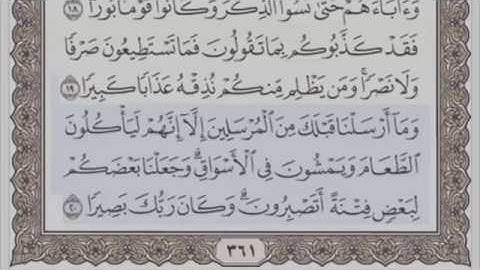 وَءَابَآءَهُمْ حَتَّىٰ نَسُوا۟ ٱلذِّكْرَ وَكَانُوا۟ قَوْمًۢا بُورًا ١٨
فَقَدْ كَذَّبُوكُم بِمَا تَقُولُونَ فَمَا تَسْتَطِيعُونَ صَرْفًا
وَلَا نَصْرًا ۚ وَمَن يَظْلِم مِّنكُمْ نُذِقْهُ عَذَابًا كَبِيرًا ١٩
وَمَآ أَرْسَلْنَا قَبْلَكَ مِنَ ٱلْمُرْسَلِينَ إِلَّآ إِنَّهُمْ لَيَأْكُلُونَ
ٱلطَّعَامَ وَيَمْشُونَ فِى ٱلْأَسْوَاقِ ۗ وَجَعَلْنَا بَعْضَكُمْ
لِبَعْضٍ فِتْنَةً أَتَصْبِرُونَ ۗ وَكَانَ رَبُّكَ بَصِيرًا ٢٠
٣٦١